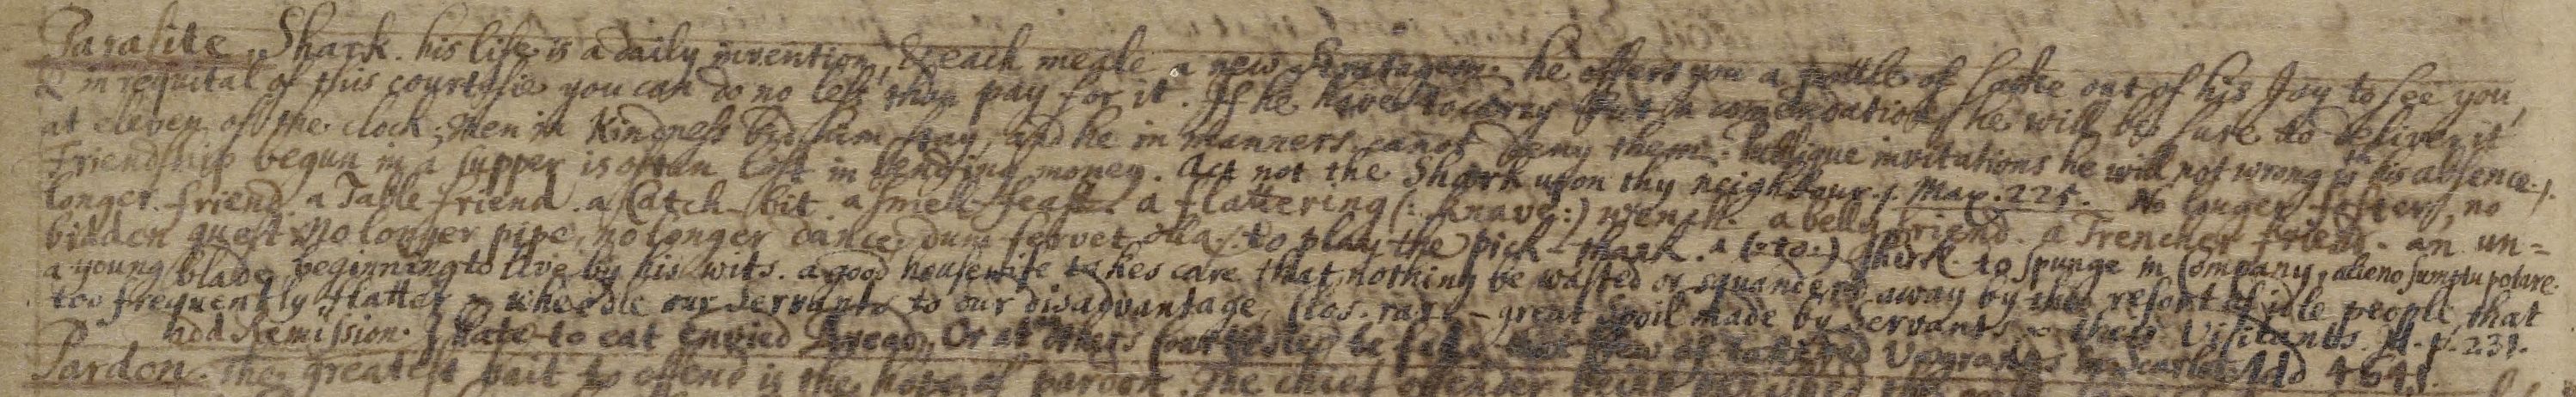 Parasite. Shark. his life is a daily invention, & each meale a new Stratagem. he offers you a pottle of sacke out of his Joy to see you,
& in requital of this courtesie you can do no less than pay for it. If he have to carry but a comendation he will be sure to deliver it
at eleven of the clock; then in Kindness bid him stay, and he in manners canot deny them. Publique invitations he will not wrong wth his absence.
Friendship begun in a supper is often lost in lending money. Act not the Shark upon thy neighbour. Max. 225. No longer foster, no
longer friend. a Table friend. a Catch-bit. a smell-feast. a flattering (: Knave:) wench. a belly friend. a Trencher friend. an un=
bidden guest. No longer pipe, no longer dance. dum fervet olla. to play the pick-thank. a (: to:) shirk. to spunge in Company, alieno sumptu potare.
a young blade beginning to live by his wits. a good housewife takes care that nothing be wasted or squandered away by the resort of idle people that
too frequently flatter & wheedle our Servants to our disadvantage, great Spoil made by Servants & their Visitants. p. 231.
add Remission. I hate to eat envied Bread, Or at others be fed. Add 4641.
Pardon. The greatest bait to offend is the hope of pardon. The chief offender being